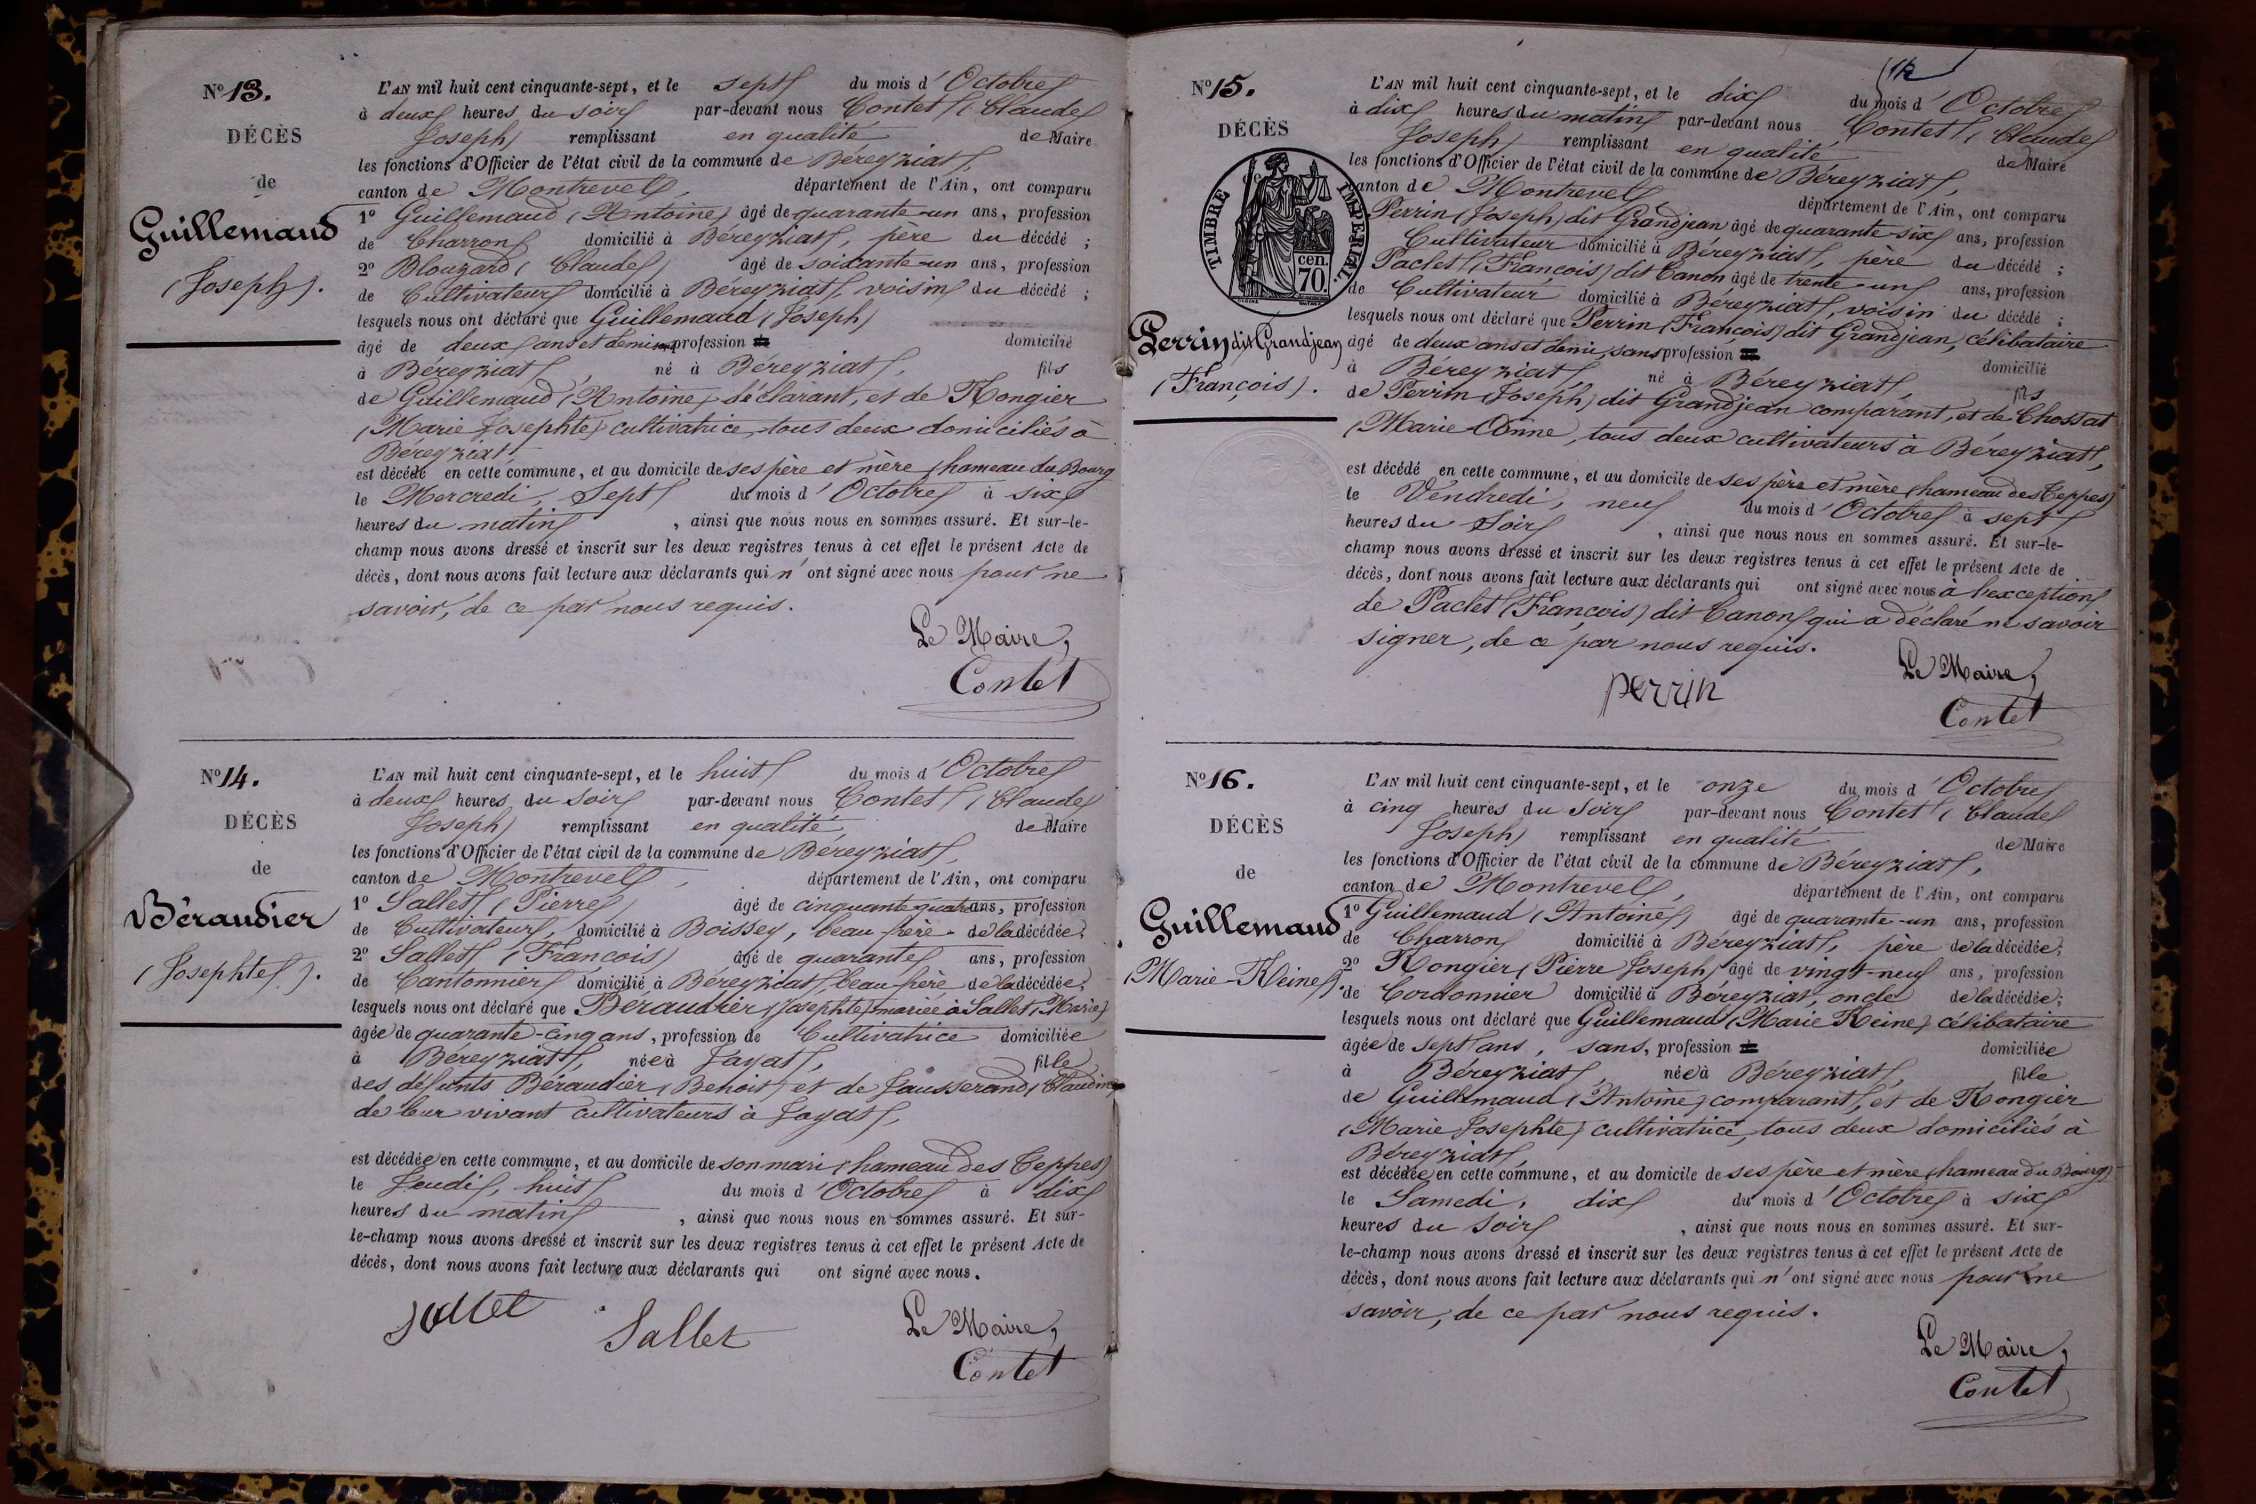 N° 13.
DÉCÈS
de
Guillemaud
(Joseph).
L'AN mil huit cent cinquante-sept, et le sept du mois d'Octobre
à deux heures du soir par-devant nous Contet (Claude
Joseph) remplissant en qualité de Maire
les fonctions d'Officier de l'état civil de la commune de Béreyziat,
canton de Montrevel, département de l'Ain, ont comparu
1° Guillemaud (Antoine) âgé de quarante-un ans, profession
de Charron domicilié à Béreyziat, père du décédé ;
2° Blouzard (Claude) âgé de soixante-un ans, profession
de Cultivateur domicilié à Béreyziat, voisin du décédé ;
lesquels nous ont déclaré que Guillemaud (Joseph)
âgé de deux ans et demi profession de domicilié
à Béreyziat, né à Béreyziat, fils
de Guillemaud (Antoine) déclarant, et de Rongier
(Marie Josephte) cultivatrice, tous deux domiciliés à
Béreyziat,
est décédé en cette commune, et au domicile de ses père et mère (hameau du Bourg
le Mercredi, Sept du mois d'Octobre à six
heures du matin, ainsi que nous nous en sommes assuré. Et sur-le-
champ nous avons dressé et inscrit sur les deux registres tenus à cet effet le présent Acte de
décès, dont nous avons fait lecture aux déclarants qui n'ont signé avec nous pour ne
savoir, de ce par nous requis.
Le Maire,
Contet
N° 14.
DÉCÈS
de
Béraudier
(Josephte).
L'AN mil huit cent cinquante-sept, et le huit du mois d'Octobre
à deux heures du soir par-devant nous Contet (Claude
Joseph) remplissant en qualité de Maire
les fonctions d'Officier de l'état civil de la commune de Béreyziat,
canton de Montrevel, département de l'Ain, ont comparu
1° Sallet (Pierre) âgé de cinquante-quatre ans, profession
de Cultivateur, domicilié à Boissey, beau-frère de la décédée ;
2° Sallet (François) âgé de quarante ans, profession
de Cantonnier domicilié à Béreyziat, beau-frère de la décédée ;
lesquels nous ont déclaré que Béraudier (Josephte) mariée à Sallet (Marie)
âgée de quarante-cinq ans, profession de Cultivatrice domiciliée
à Béreyziat, née à Jayat, fille
des défunts Béraudier (Benoit) et de Jausserand (Claudine
de leur vivant cultivateurs à Jayat,
est décédée en cette commune, et au domicile de son mari (hameau des Teppes)
le Jeudi, huit du mois d'Octobre à dix
heures du matin, ainsi que nous nous en sommes assuré. Et sur-
le-champ nous avons dressé et inscrit sur les deux registres tenus à cet effet le présent Acte de
décès, dont nous avons fait lecture aux déclarants qui ont signé avec nous.
Sallet Sallet
Le Maire,
Contet
N° 15.
DÉCÈS
TIMBRE IMPÉRIAL.
70. cen.
Perrin dit Grandjean
(François).
L'AN mil huit cent cinquante-sept, et le dix du mois d'Octobre
à dix heures du matin par-devant nous Contet (Claude
Joseph) remplissant en qualité de Maire
les fonctions d'Officier de l'état civil de la commune de Béreyziat,
canton de Montrevel, département de l'Ain, ont comparu
Perrin (Joseph) dit Grandjean âgé de quarante-six ans, profession
Cultivateur domicilié à Béreyziat, père du décédé ;
Paclet (François) dit Canon âgé de trente-un ans, profession
de Cultivateur domicilié à Béreyziat, voisin du décédé ;
lesquels nous ont déclaré que Perrin (François) dit Grandjean, célibataire
âgé de deux ans et demi, sans profession domicilié
à Béreyziat, né à Béreyziat, fils
de Perrin (Joseph) dit Grandjean comparant, et de Chossat
(Marie Anne, tous deux cultivateurs à Béreyziat,
est décédé en cette commune, et au domicile de ses père et mère (hameau des Teppes)
le Vendredi, neuf du mois d'Octobre à sept
heures du Soir, ainsi que nous nous en sommes assuré. Et sur-le-
champ nous avons dressé et inscrit sur les deux registres tenus à cet effet le présent Acte de
décès, dont nous avons fait lecture aux déclarants qui ont signé avec nous à l'exception
de Paclet (François) dit Canon qui a déclaré ne savoir
signer, de ce par nous requis.
Perrin
Le Maire,
Contet
N° 16.
DÉCÈS
de
Guillemaud
(Marie-Reine).
L'AN mil huit cent cinquante-sept, et le onze du mois d'Octobre
à cinq heures du Soir par-devant nous Contet (Claude
Joseph) remplissant en qualité de Maire
les fonctions d'Officier de l'état civil de la commune de Béreyziat,
canton de Montrevel, département de l'Ain, ont comparu
1° Guillemaud (Antoine) âgé de quarante-un ans, profession
de Charron domicilié à Béreyziat, père de la décédée ;
2° Rongier (Pierre Joseph) âgé de vingt-neuf ans, profession
de Cordonnier domicilié à Béreyziat, oncle de la décédée ;
lesquels nous ont déclaré que Guillemaud (Marie Reine) célibataire
âgée de Sept ans, sans, profession domiciliée
à Béreyziat, née à Béreyziat, fille
de Guillemaud (Antoine) comparant, et de Rongier
(Marie Josephte) cultivatrice, tous deux domiciliés à
Béreyziat,
est décédée en cette commune, et au domicile de ses père et mère (hameau du Bourg)
le Samedi, dix du mois d'Octobre à six
heures du Soir, ainsi que nous nous en sommes assuré. Et sur-
le-champ nous avons dressé et inscrit sur les deux registres tenus à cet effet le présent Acte de
décès, dont nous avons fait lecture aux déclarants qui n'ont signé avec nous pour ne
savoir, de ce par nous requis.
Le Maire,
Contet